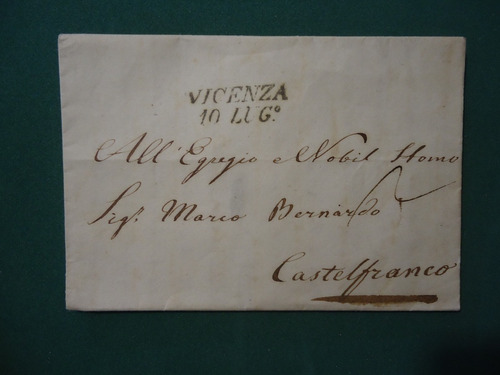 VICENZA
10 LUG.º
All' Egregio e Nobil Homo
Sigr. Marco Bernardo
Castelfranco